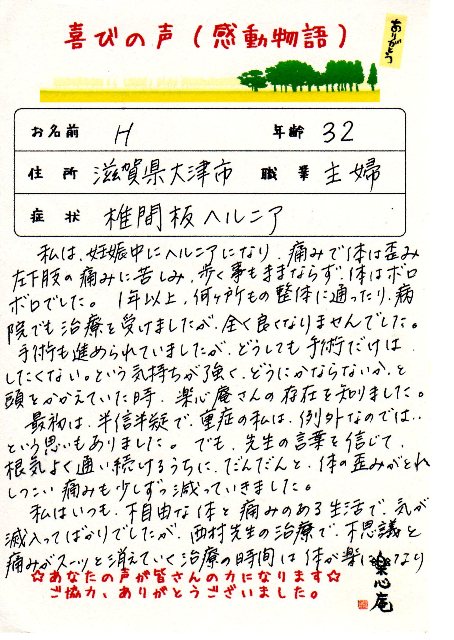 喜びの声（感動物語）
ありがとう
お名前 H 年齢 32
住所 滋賀県大津市 職業 主婦
症状 椎間板ヘルニア
私は、妊娠中にヘルニアになり、痛みで体は歪み
左下肢の痛みに苦しみ、歩く事もままならず、体はボロ
ボロでした。1年以上、何ヶ所もの整体に通ったり、病
院でも治療を受けましたが、全く良くなりませんでした。
手術も進められていましたが、どうしても手術だけは
したくない。という気持ちが強く、どうにかならないか、と
頭をかかえていた時、楽心庵さんの存在を知りました。
最初は、半信半疑で、重症の私は、例外なのでは..
という思いもありました。でも、先生の言葉を信じて、
根気よく通い続けるうちに、だんだんと、体の歪みがとれ
しつこい痛みも少しずつ減っていきました。
私はいつも、不自由な体と痛みのある生活で、気が
滅入ってばかりでしたが、西村先生の治療で、不思議と
痛みがスーッと消えていく治療の時間は体が楽になり
☆あなたの声が皆さんの力になります☆
ご協力、ありがとうございました。
楽心庵